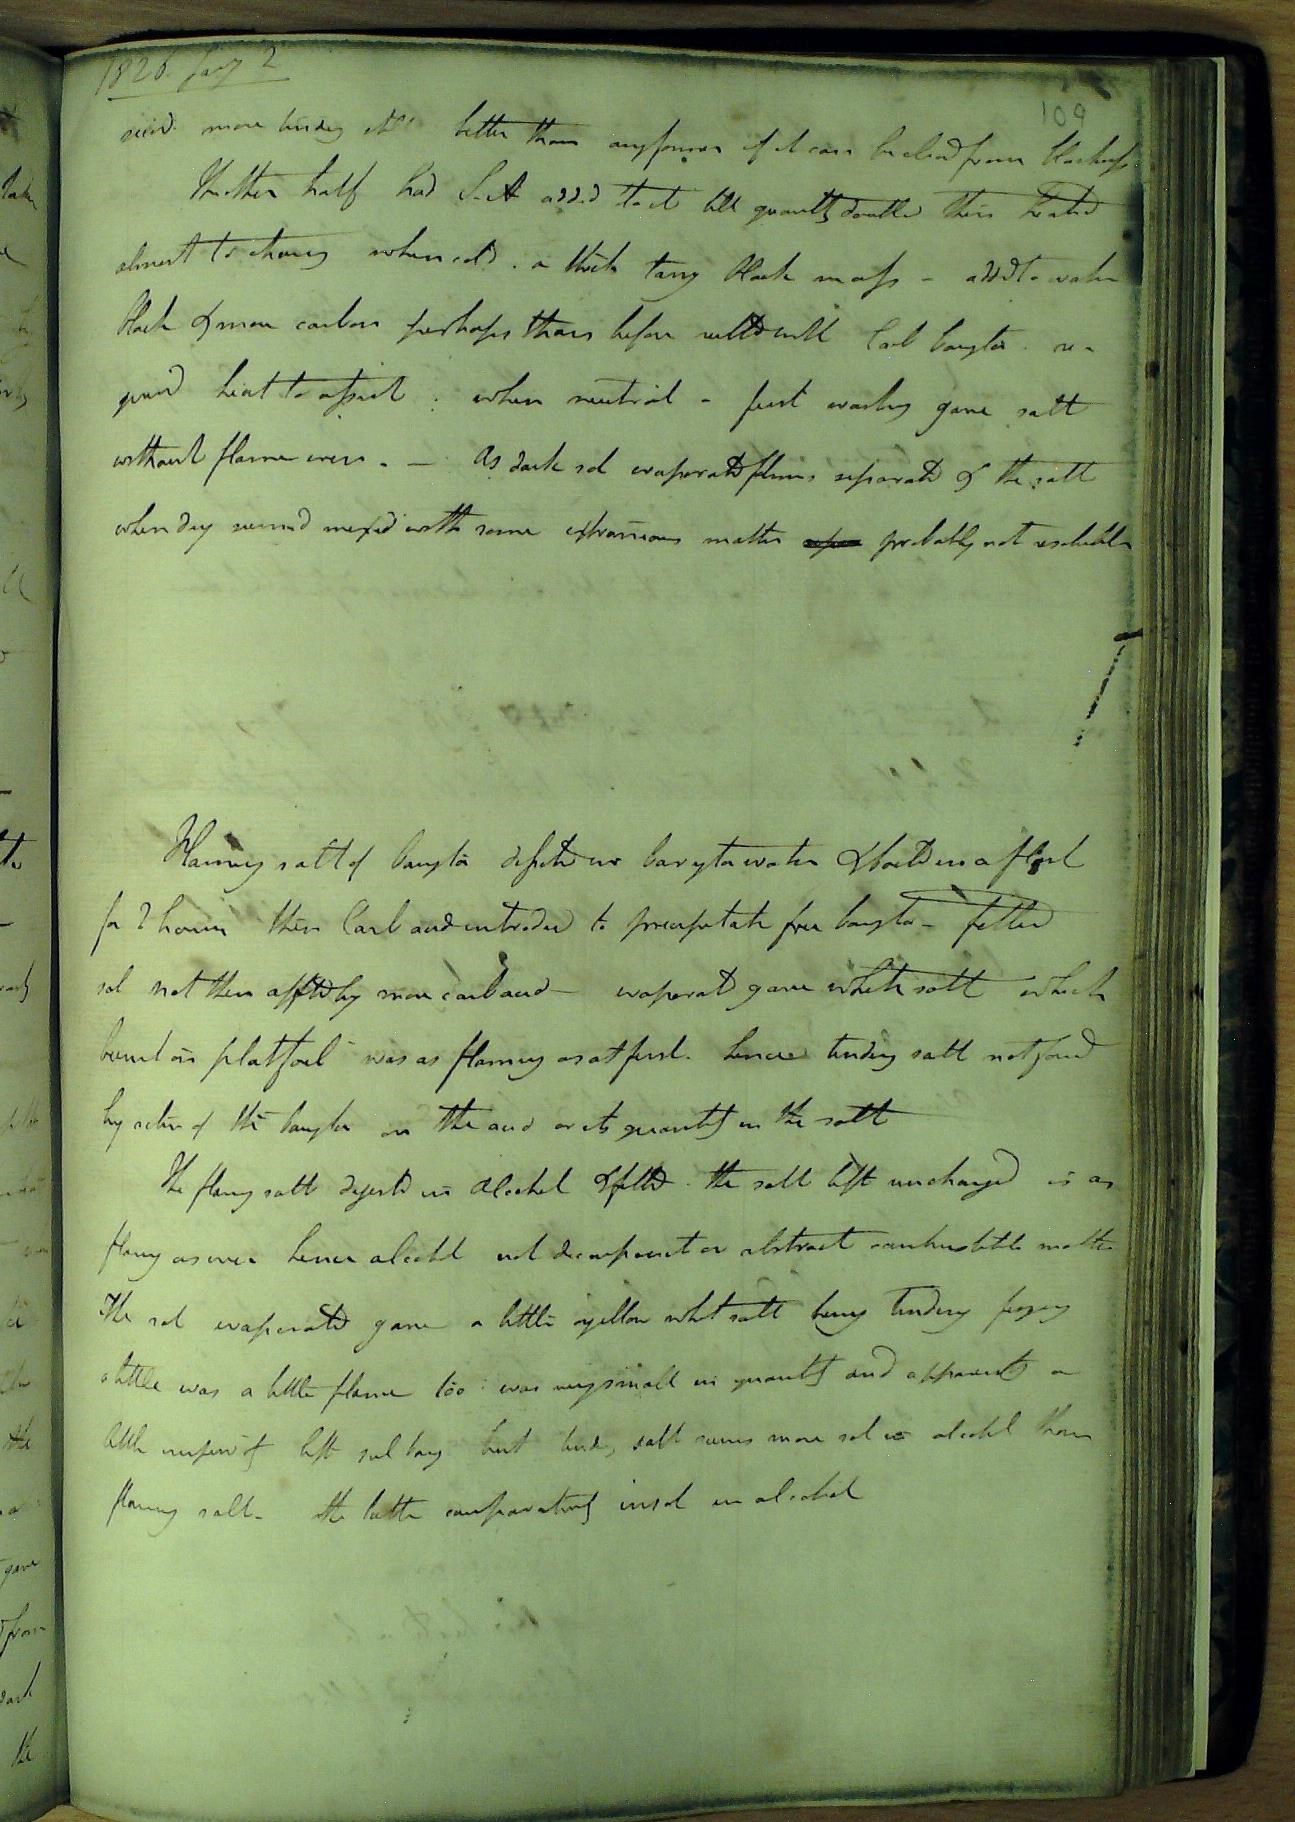 1826 Jany 2
109
more tindery &c better than any former if it can be cleared from blackness
Another half had S. A added to it till quantity doubled then heated
almost to charing when cold. a thick tarry black mass - added to water
black & more carbon perhaps than before Carb baryta. re-
quired heat to assist. when neutral - first washing gave salt
without flame even. - As dark sol evaporated films separated & the salt
when dry seemed mixed with some extraneous matter probably not

Flaming salt of baryta in baryta water & boiled in a flask
for 2 hours then Carb acid introdud to precipitate free baryta - filtered
sol not then affected by more carb acid - evaporated gave white salt which
burnt on plat foil was as flaming as at first. hence tindery salt not formed
by action of the baryta on the acid or its quantity in the salt
The flamg salt digested in Alcohol & filtd. the salt left unchanged is as
flamg as ever hence alcohol not decompose it or abstract combustible matter
The sol evaporated gave a little yellow whit salt being tindery
a little was a little flame too was very small in quantity and apparently a
little left sol but tind, salt seems more sol in alcohol than
flaming salt - the latter comparatively insol in alcohol